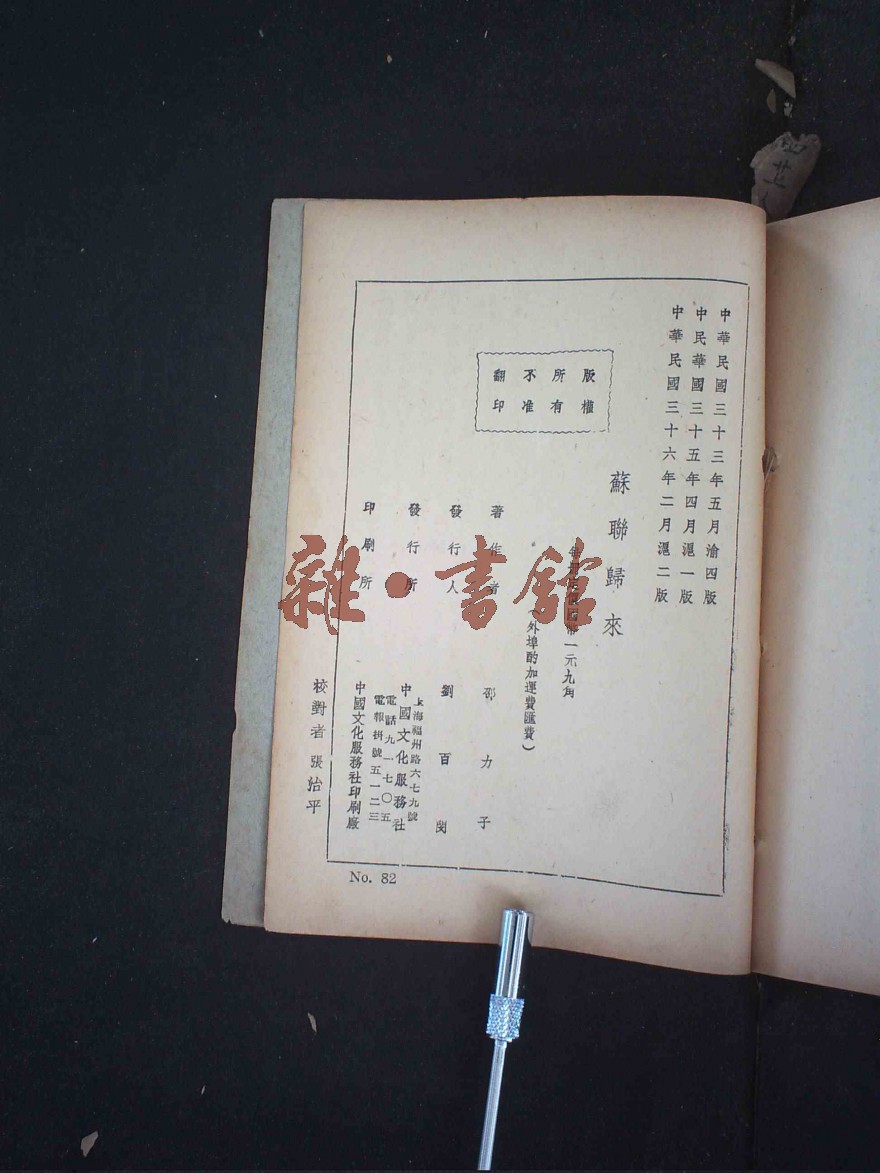 中華民國三十三年五月渝四版
中民華國三十五年四月滬一版
中華民國三十六年二月滬二版
蘇聯歸來
國幣一元九角
(外埠酌加運費匯費)
版權
所有
不准
翻印
著作者 邵力子
發行人 劉百閔
發行所 中國文化服務社
上海福州路六七九號
電話九一七〇五
電報掛號五一二三
印刷所 中國文化服務社印刷廠
校對者 張怡平
No. 82
雜·書館